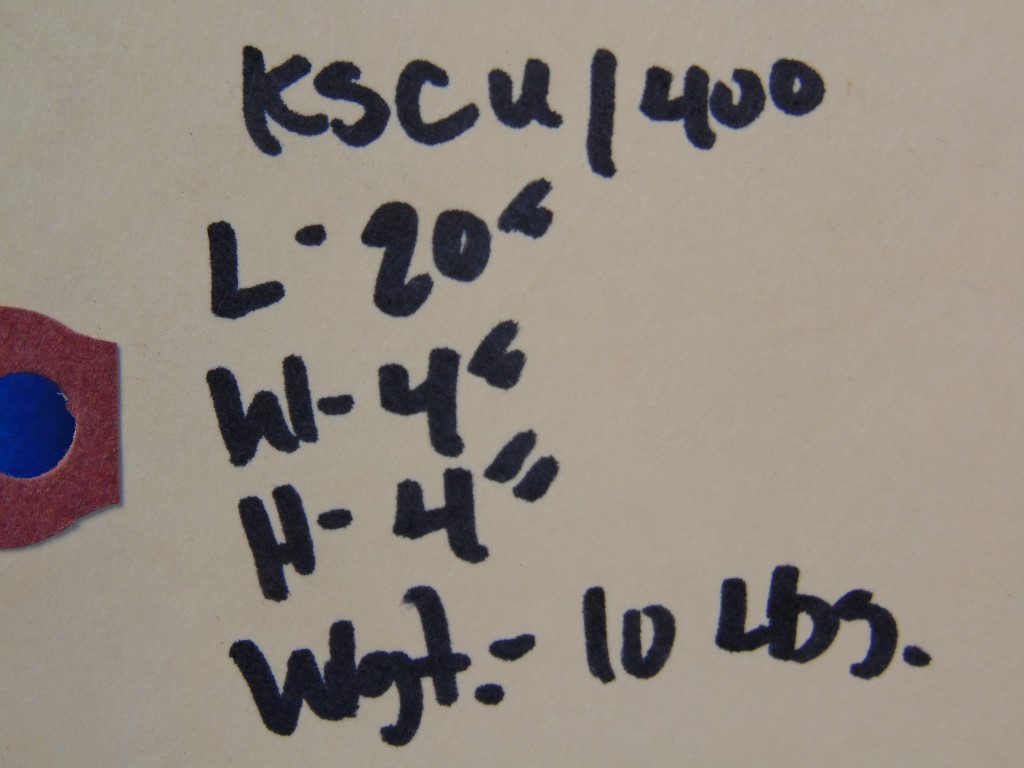 KSCU/400
L- 20"
W- 4"
H- 4"
Wgt.- 10 Lbs.